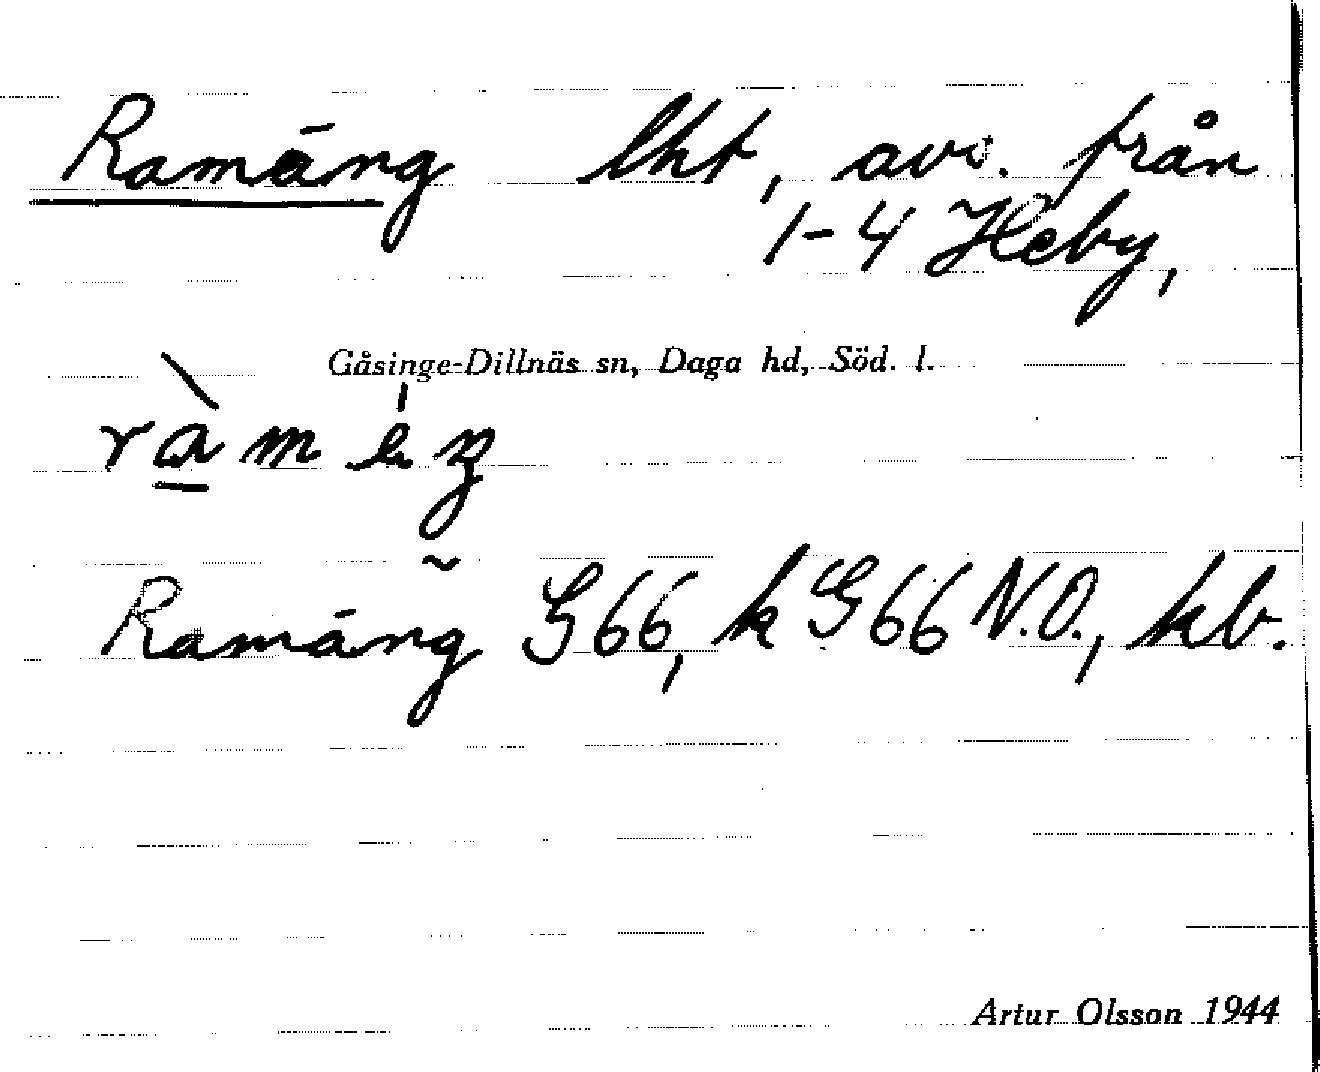 Ramäng lht, avs. från
1-4 Heby,
Gåsinge-Dillnäs sn, Daga hd, Söd. l.
Ramäng G66, k G66 N.O., kb.
Artur Olsson 1944